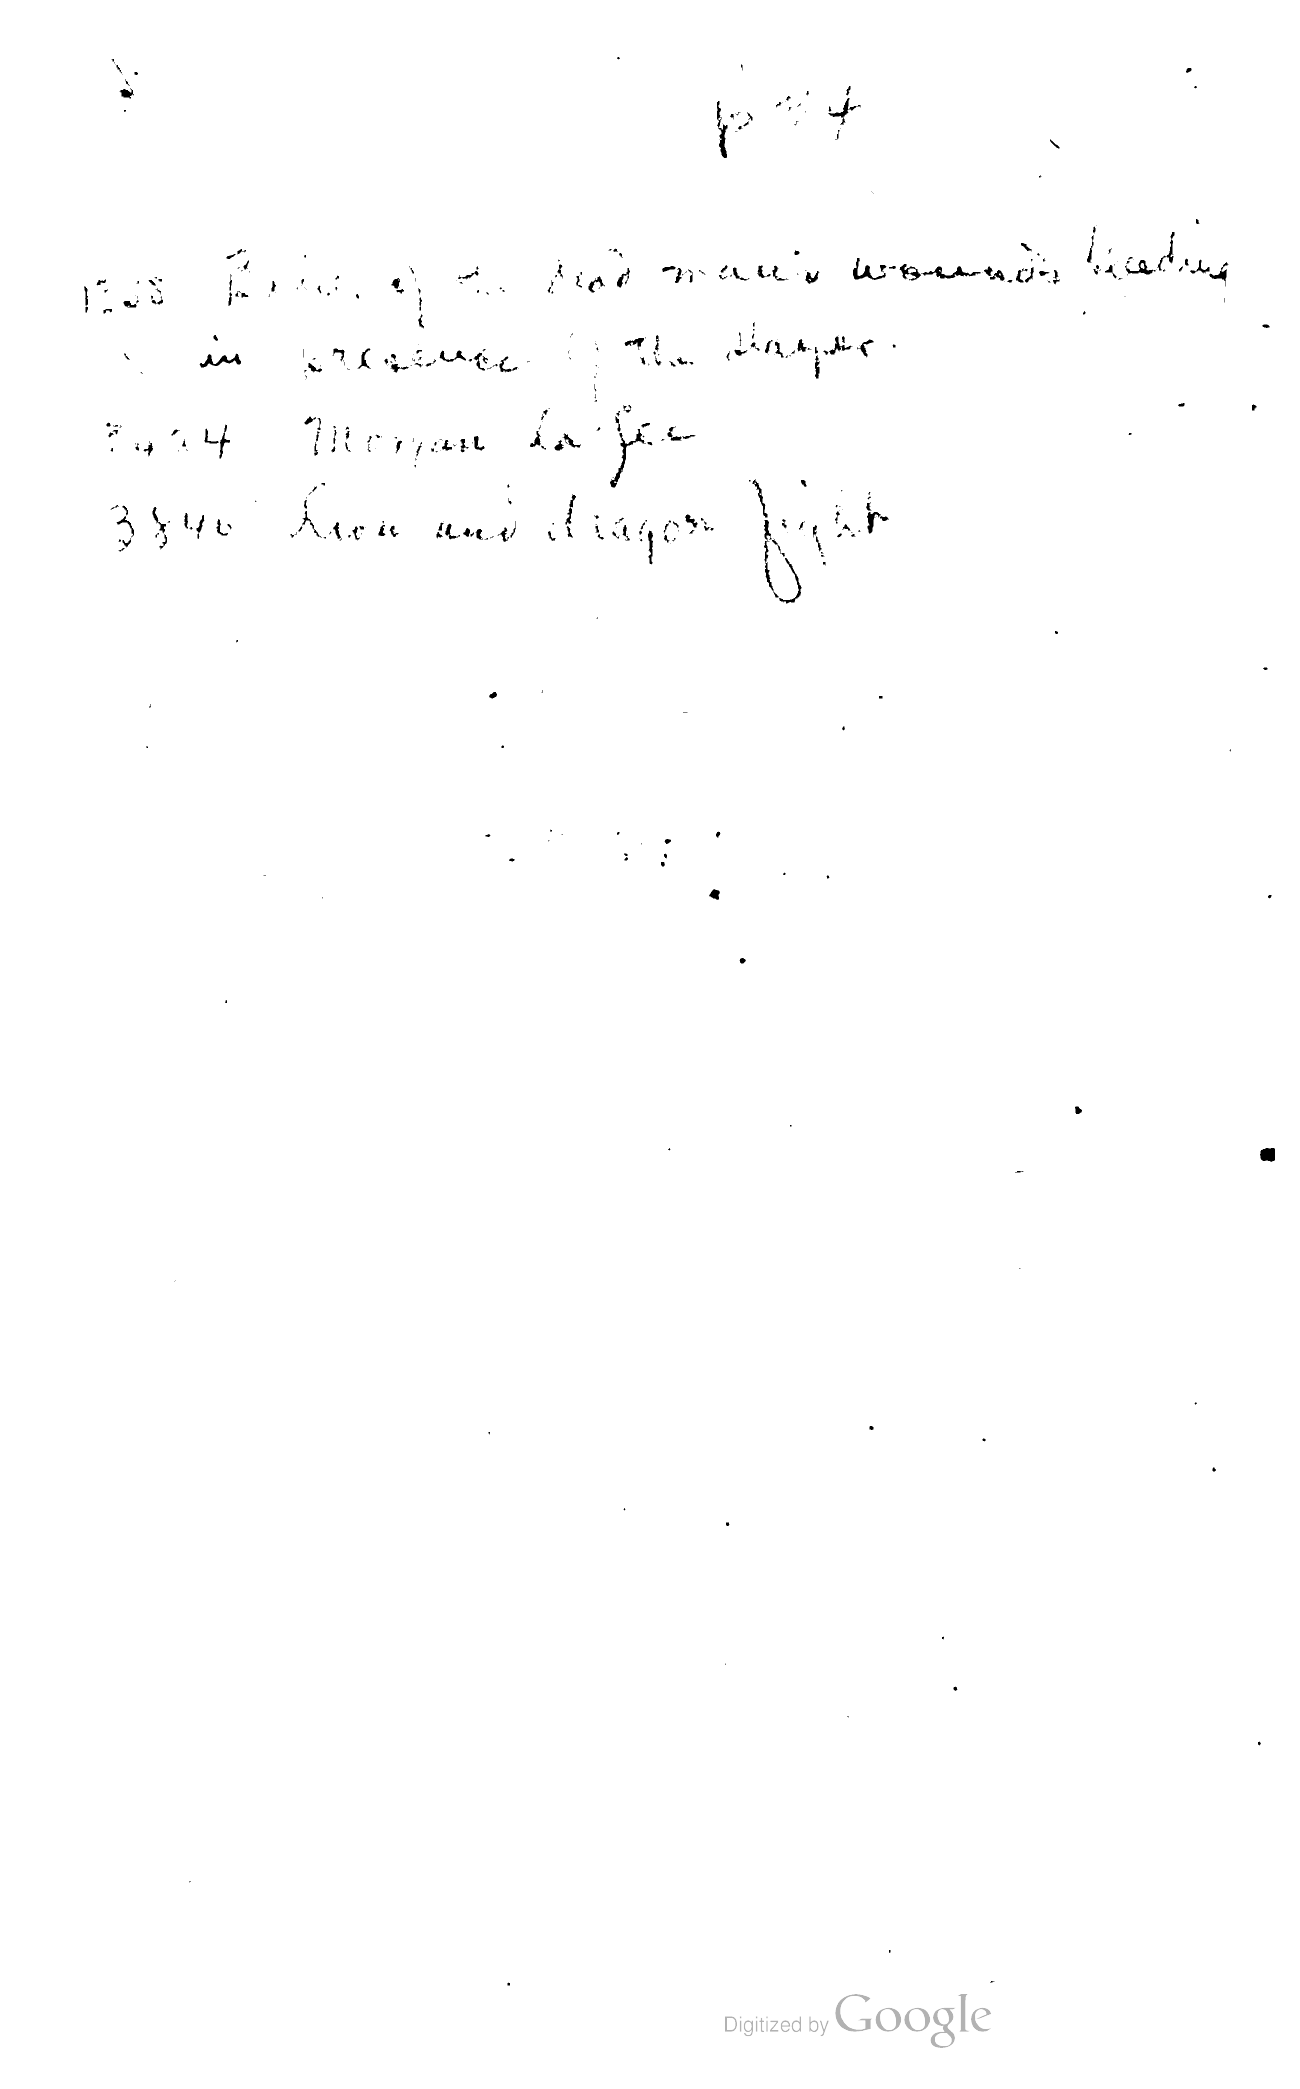 of the dead man's wounds bleeding
in presence of the slayer.
Morgan la fee
3840 Lion and dragon fight
Digitized by Google